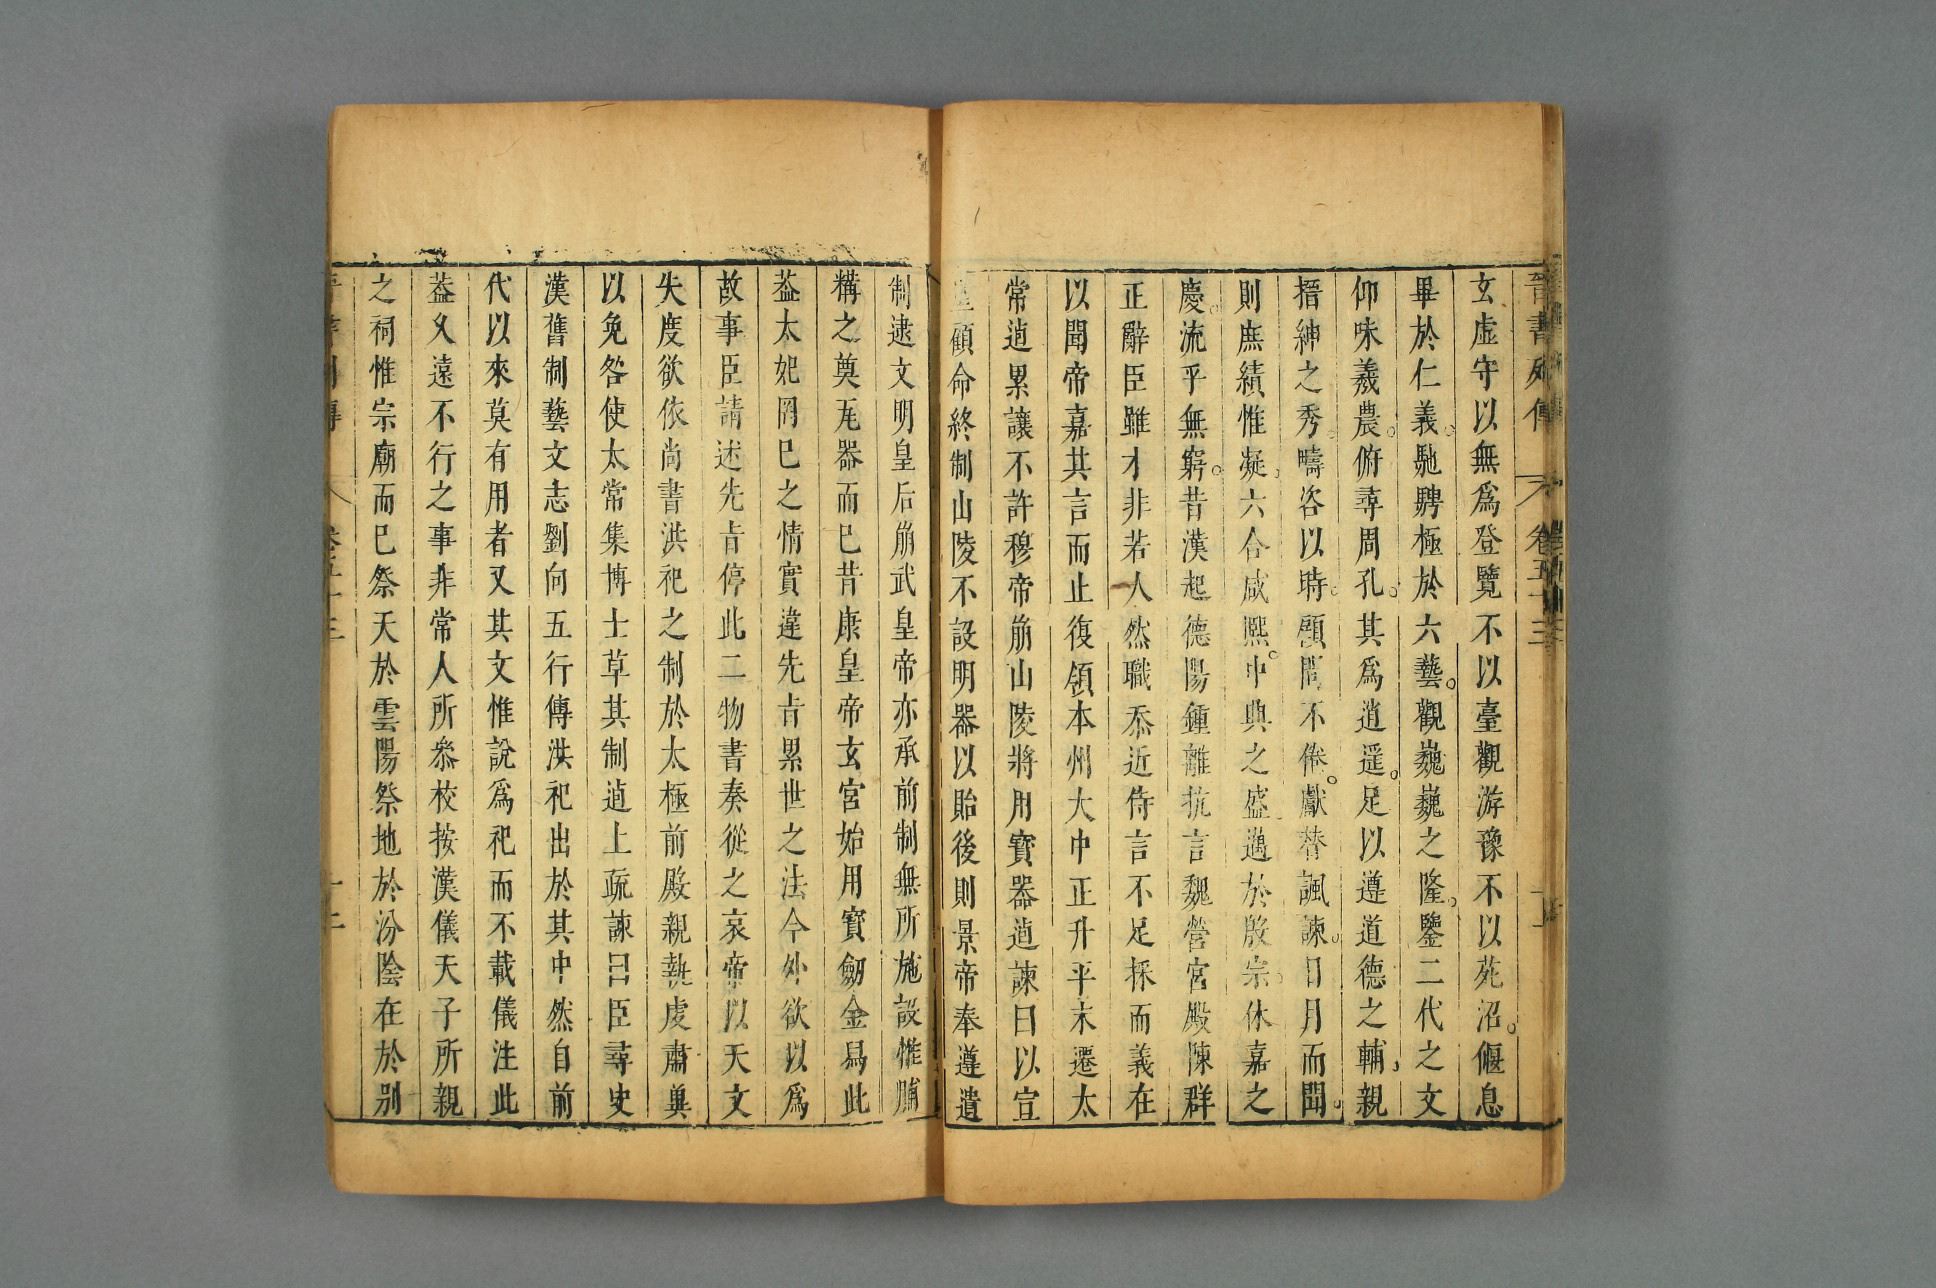 晉書列傳 卷五十三
玄虛守以無爲登覽不以臺觀游豫不以苑沼偃息
畢於仁義馳騁極於六藝觀巍巍之隆鑒二代之文
仰味羲農俯尋周孔其爲逍遥足以遵道德之輔親
搢紳之秀疇咨以時顧問不倦獻替諷諫日月而聞
則庶績惟凝六合咸熈中典之盛邁於殷宗休嘉之
慶流乎無窮昔漢起德陽鍾離抗言魏營宮殿陳群
正辭臣雖才非若人然職忝近侍言不足採而義在
以聞帝嘉其言而止復領本州大中正升平末遷太
常逌累讓不許穆帝崩山陵將用寶器逌諫曰以宣
皇顧命終制山陵不設明器以貽後則景帝奉遵遺
制逮文明皇后崩武皇帝亦承前制無所施設惟脯
糒之奠瓦器而已昔康皇帝玄宮始用寶劒金舄此
葢太妃罔已之情實違先㫖累世之法今外欲以爲
故事臣請述先㫖停此二物書奏從之哀帝以天文
失度欲依尚書洪祀之制於太極前殿親執虔肅冀
以免咎使太常集博士草其制逌上疏諫曰臣尋史
漢舊制藝文志劉向五行傳洪祀出於其中然自前
代以來莫有用者又其文惟說爲祀而不載儀注此
葢乆遠不行之事非常人所叅校按漢儀天子所親
之祠惟宗廟而已祭天於雲陽祭地於汾陰在於别
晉書列傳 卷五十三 十二